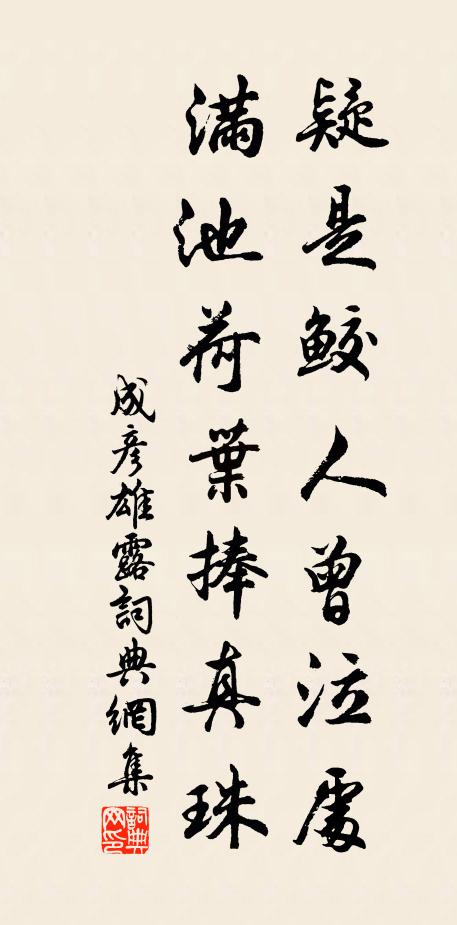 疑是鮫人曾泣處
滿池荷葉捧真珠
成彥雄露詞典網集
詞典網印